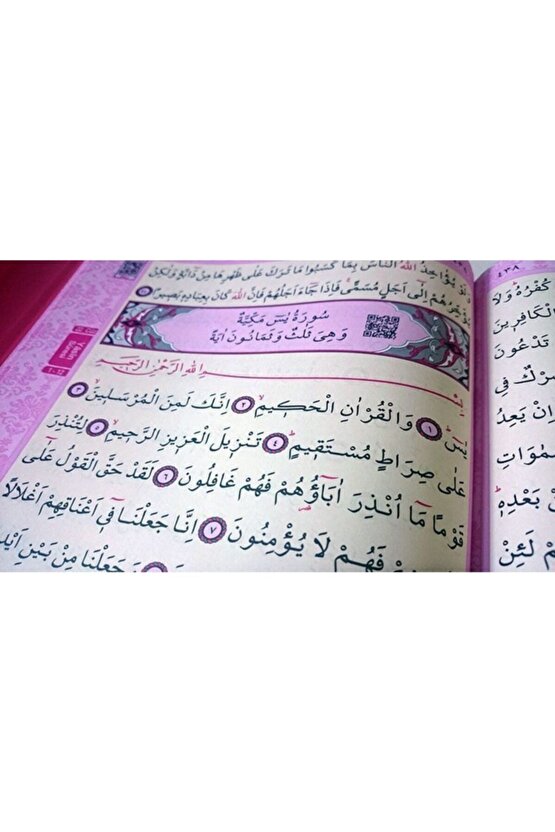 يُؤَاخِذُ اللّٰهُ النَّاسَ بِمَا كَسَبُوا مَا تَرَكَ عَلٰى ظَهْرِهَا مِنْ دَٓابَّةٍ وَلٰكِنْ
يُؤَخِّرُهُمْ اِلٰٓى اَجَلٍ مُسَمًّىۚ فَاِذَا جَٓاءَ اَجَلُهُمْ فَاِنَّ اللّٰهَ كَانَ بِعِبَادِه۪ بَص۪يرًا
سُورَةُ يٰسٓ مَكِّيَّةٌ
وَهِىَ ثَلٰثٌ وَثَمَانُونَ اٰيَةً
بِسْمِ اللّٰهِ الرَّحْمٰنِ الرَّحِيمِ
يٰسٓۜ ﴿١﴾ وَالْقُرْاٰنِ الْحَك۪يمِۙ ﴿٢﴾ اِنَّكَ لَمِنَ الْمُرْسَل۪ينَۙ ﴿٣﴾
عَلٰى صِرَاطٍ مُسْتَق۪يمٍۜ ﴿٤﴾ تَنْز۪يلَ الْعَز۪يزِ الرَّح۪يمِۙ ﴿٥﴾ لِتُنْذِرَ
قَوْمًا مَٓا اُنْذِرَ اٰبَٓاؤُ۬هُمْ فَهُمْ غَافِلُونَ ﴿٦﴾ لَقَدْ حَقَّ الْقَوْلُ عَلٰٓى
فَهُمْ لَا يُؤْمِنُونَ ﴿٧﴾ اِنَّا جَعَلْنَا ف۪ٓي اَعْنَاقِهِمْ اَغْلَالًا
وَجَعَلْنَا مِنْ بَيْنِ
Yâsîn
Sûresi
٤٣٨
كُفْرُهُۜ وَلَا
الْكَافِر۪ينَ
تَدْعُونَ
شِرْكٌ فِي
اِنْ يَعِدُ
بَعْدِه۪ۜ
لَئِنْ